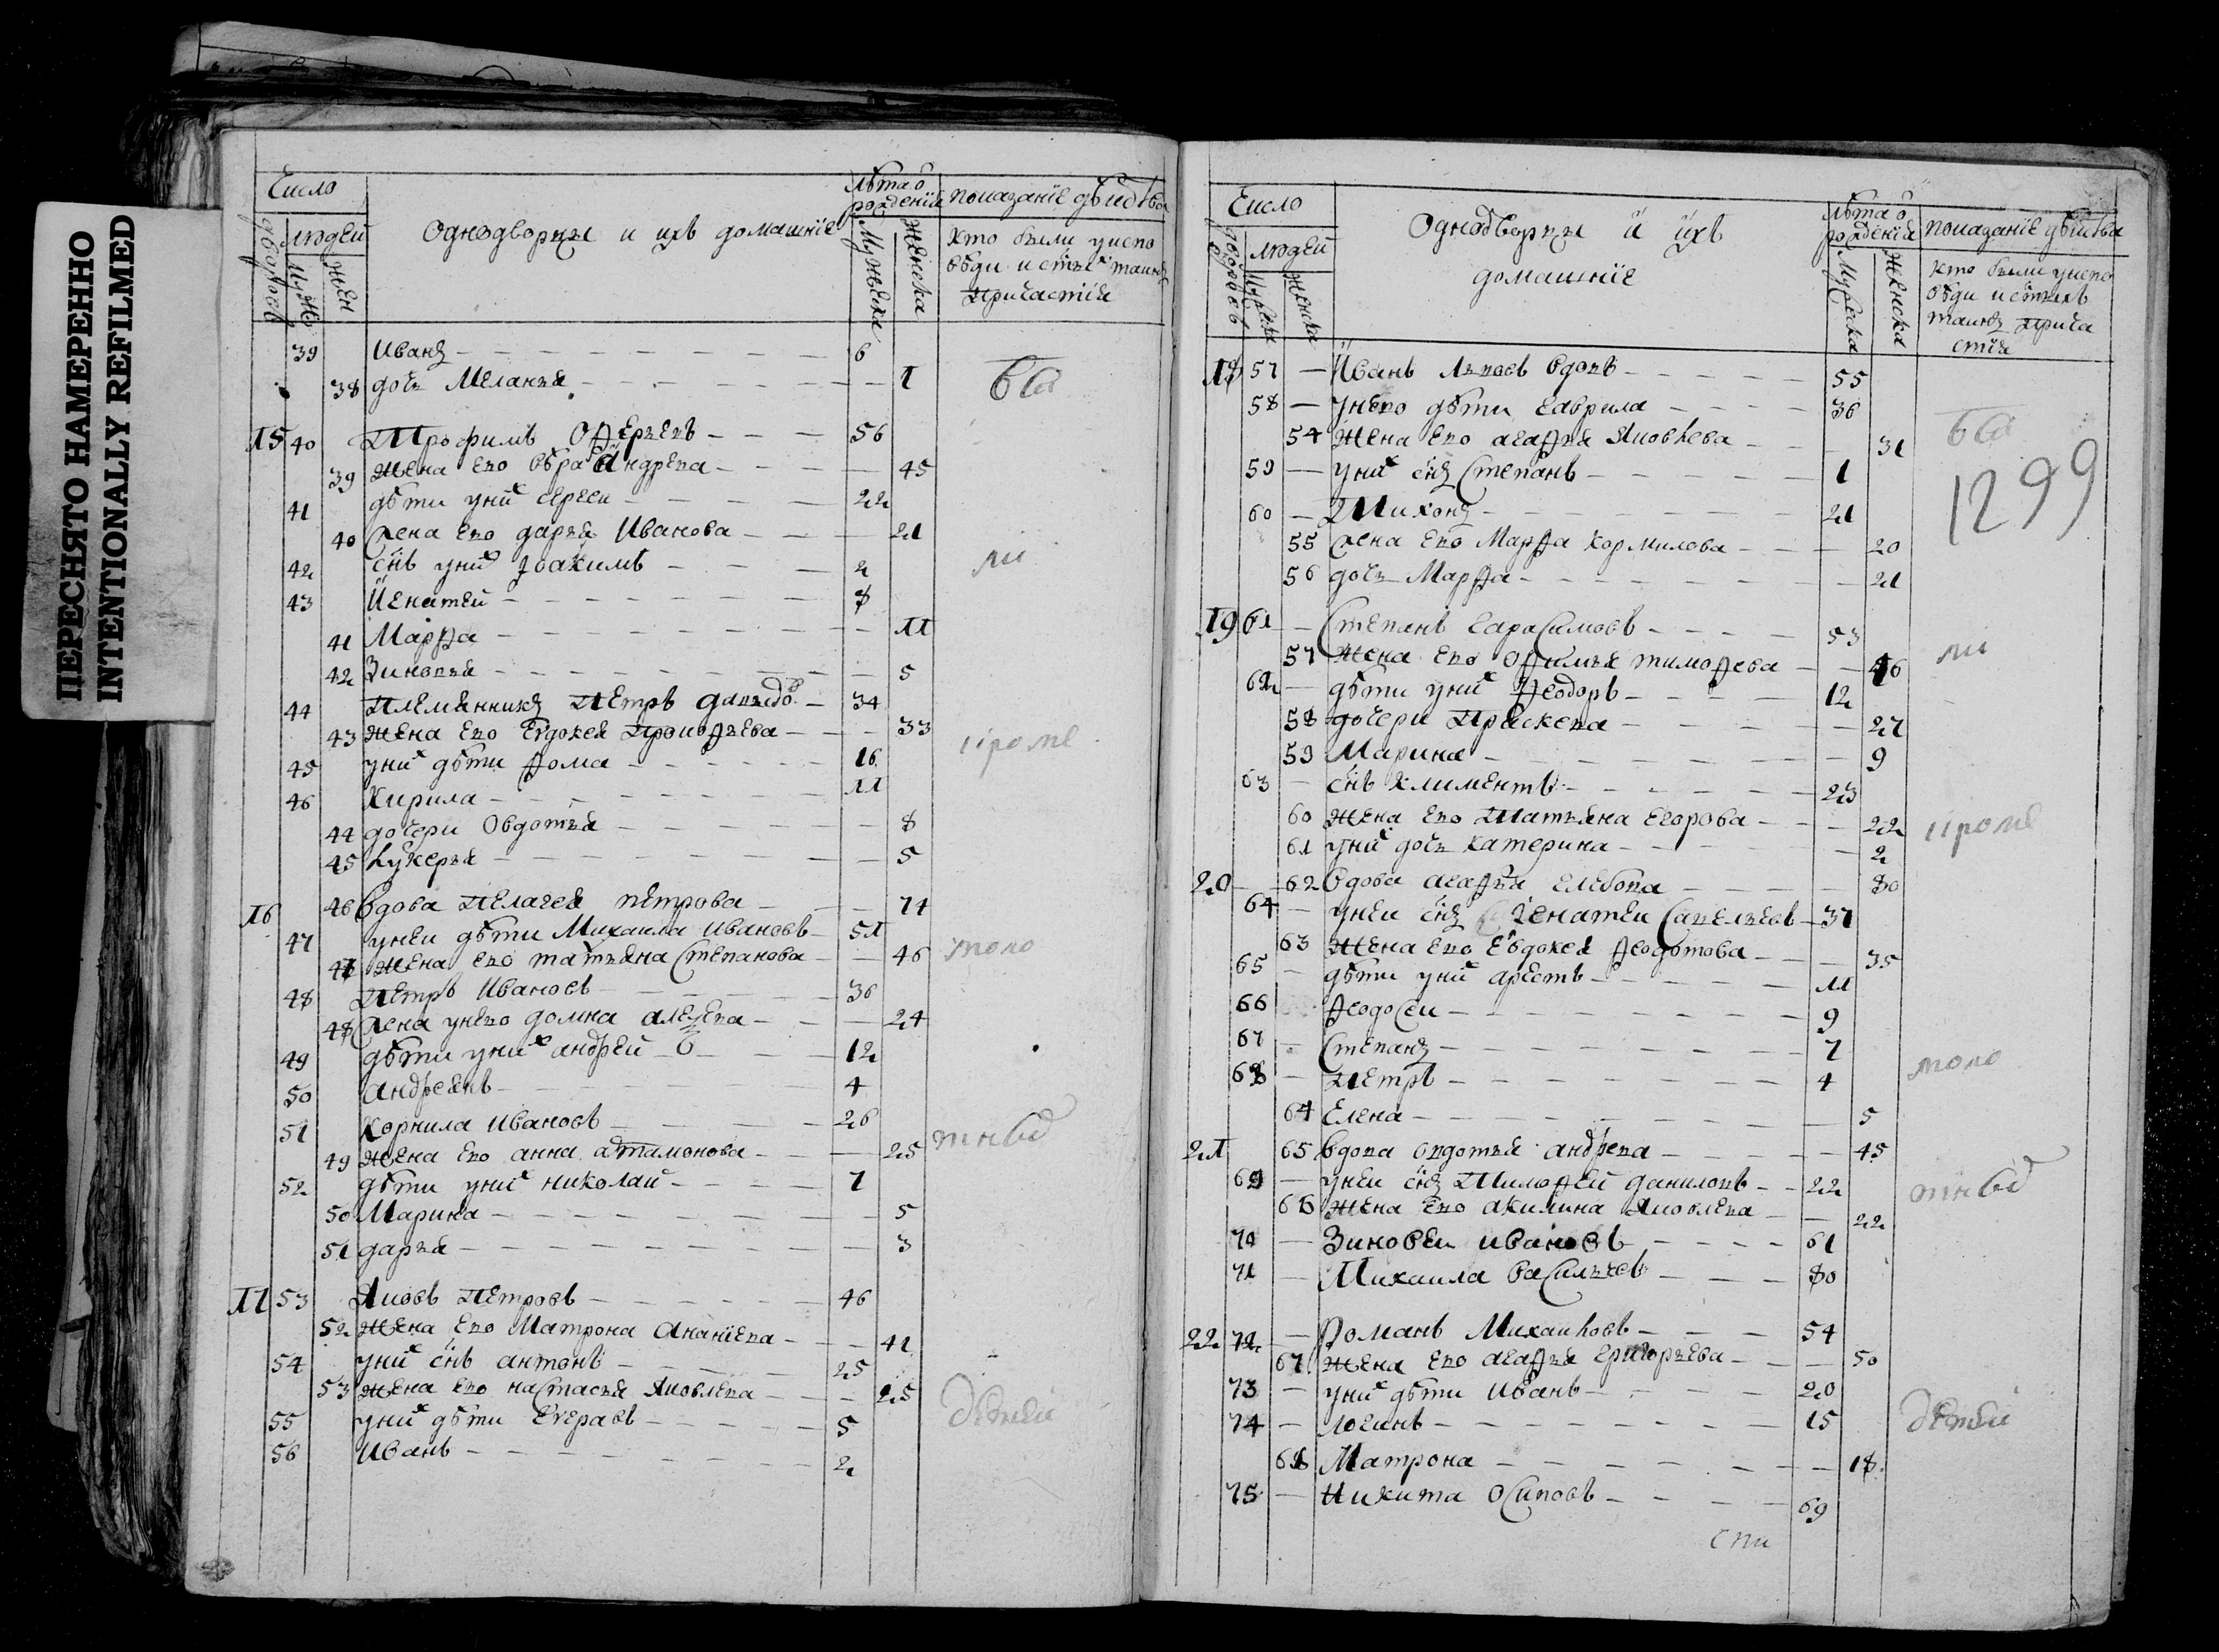 ПЕРЕСНЯТО НАМЕРЕННО
INTENTIONALLY REFILMED
Число
дворовъ
людей
Муж
жен
Однодворцы и ихъ домашние
Лѣта ѿ рожденїя
Мужеска
Женска
показанїе дѣйства
кто были у испо
вѣди и с͠тыхъ таинъ
причастїя
39 Иванъ 6
38 дочь Меланья 1
15 40 Трофимъ Оферьевъ 56
39 жена ево Вѣра Андрева 45
41 дѣти у них сергеи 22
40 жена ево дарья Иванова 21
42 с͠нъ у них Іоакимъ 2
43 Игнатей 8
41 Марфа 11
42 Зиновья 5
44 племянникъ петръ давыдо 34
43 жена ево Евдокея прокофьева 33
45 у них дѣти фома 16
46 Кирила 11
44 дочери Овдотья 8
45 Лукерья 5
16 46 вдова пелагея петрова 74
47 у неи дѣти Михаила Ивановъ 51
47 жена ево татьяна Степанова 46
48 петръ Ивановъ 36
48 жена у нево домна алеѯева 24
49 дѣти у них андрей 12
50 андреянъ 4
51 Корнила Ивановъ 26
49 жена ево анна артамонова 25
52 дѣти у них николай 7
50 Марина 5
51 дарья 3
17 53 Яковъ петровъ 46
52 жена ево Матрона Ананїева 41
54 у них с͠нъ антонъ 25
53 жена ево настасья Яковлева 25
55 у них дѣти Евграфъ 5
56 Иванъ 2
всѣ
ли
кроме
мало
тнѣх
детеи
Число
дворовъ
людей
Мужска
женска
Однодворцы и ихъ
домашнїе
Лѣта ѿ рожденїя
Мужеска
Женска
показанїе дѣйства
кто были у испо
вѣди и с͠тыхъ
таинъ прича
стїя
18 57 Иванъ 55
58 у нево дѣти гаврила 36
54 жена ево агафья Яковлева 31
59 у них с͠нъ Степанъ 1
60 Тихонъ 21
55 жена ево Марфа Кормилова 20
56 дочь Марфа 21
19 61 Степанъ гарасимовъ 53
57 жена ево офимья тимофева 46
62 дѣти у них феодоръ 12
58 дочери праскева 27
59 Марина 9
63 с͠нъ климентъ 23
60 жена ево татьяна егорова 22
61 у них дочь катерина 2
20 62 вдова агафья глебова 80
64 у неи с͠нъ Игнатеи Савельевъ 37
63 жена ево Евдокея Федотова 35
65 дѣти у них арестъ 11
66 феодосеи 9
67 Степанъ 7
68 петръ 4
64 Елена 5
21 65 вдова овдотья андрева 45
69 у неи с͠нъ тимофей даниловъ 22
66 жена ево акилина Яковлева 22
70 Зиновеи ивановъ 61
71 Михаила васильевъ 80
22 72 Романъ Михаиловъ 54
67 жена ево агафья григорьева 50
73 у них дѣти иванъ 20
74 логинъ 15
68 Матрона 18
75 Никита осиповъ 69
всѣ
1299
ли
кроме
мало
тнѣх
детеи